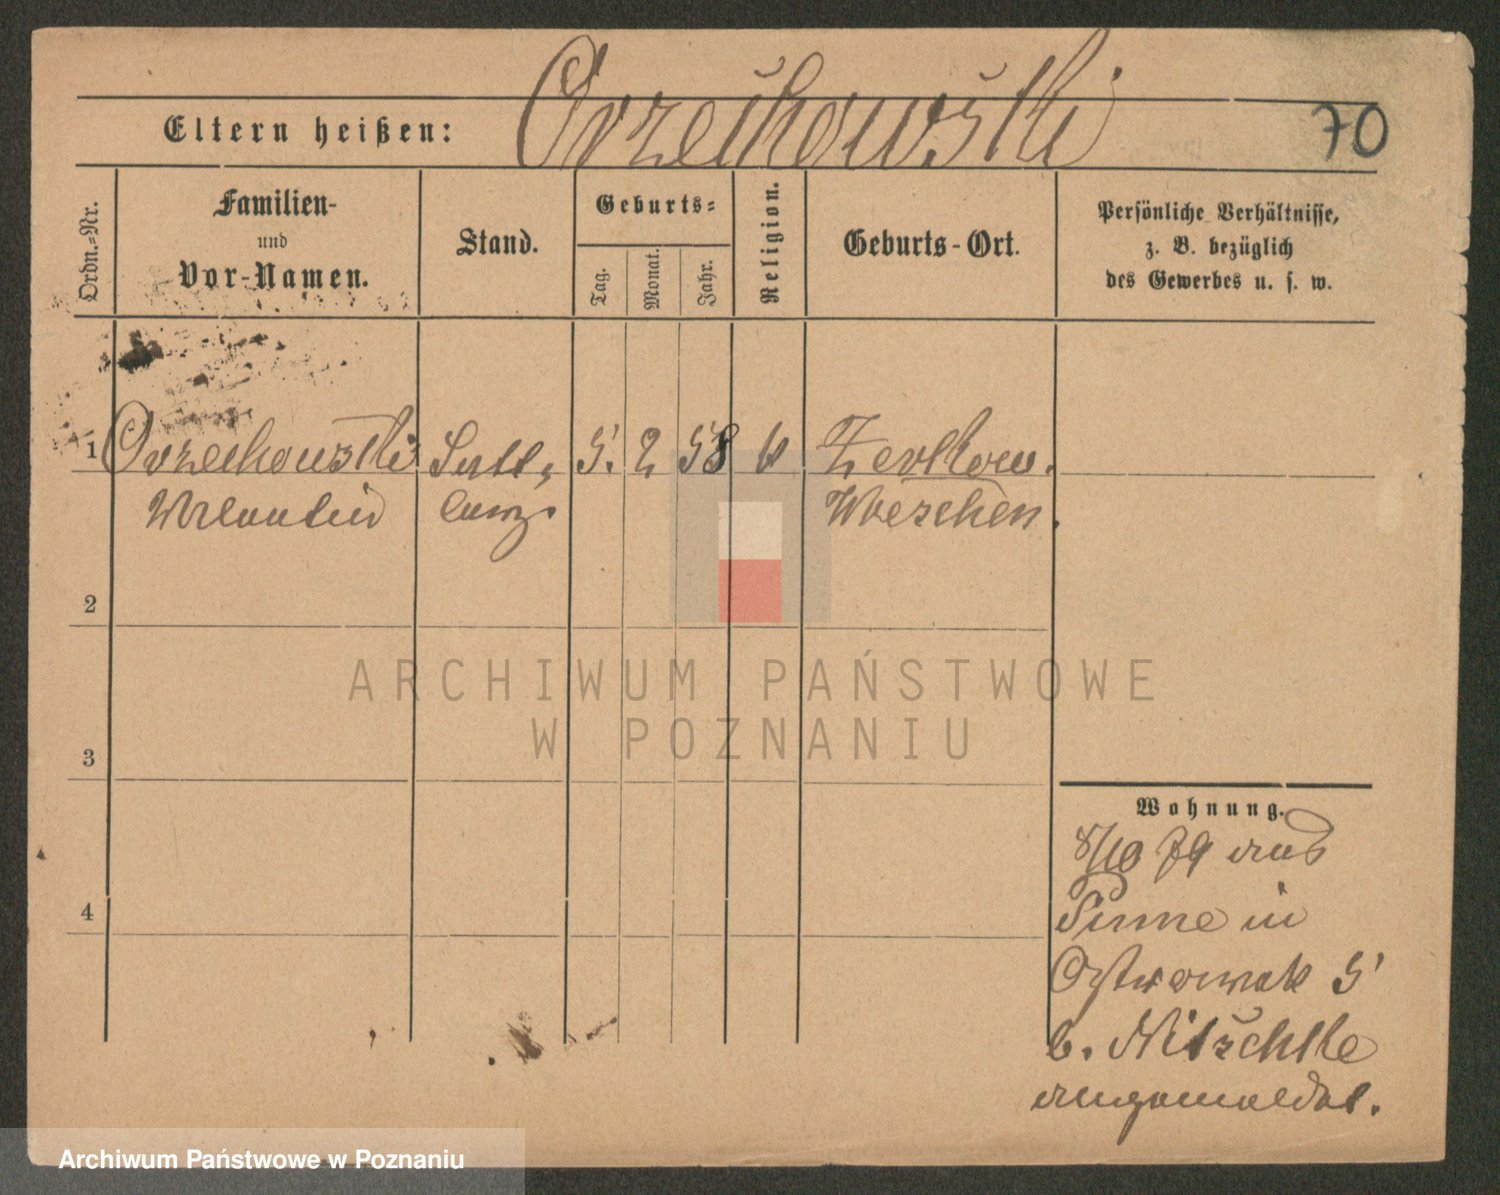 Orzechowski
Eltern heißen:
70
Ordn.-Nr.
Familien-
und
Vor-Namen.
Stand.
Geburts-
Tag.
Monat.
Jahr.
Religion.
Geburts-Ort.
Persönliche Verhältnisse,
z. B. bezüglich
des Gewerbes u. s. w.
1 Orzechowski 5. 2 58 Zerkow.
Valentin Wreschen.
2
3
4
Wohnung.
8/10 79 aus
Pinne in
Ostrowek 5
b. Nitschke
angemeldet.
ARCHIWUM PAŃSTWOWE
W POZNANIU
Archiwum Państwowe w Poznaniu